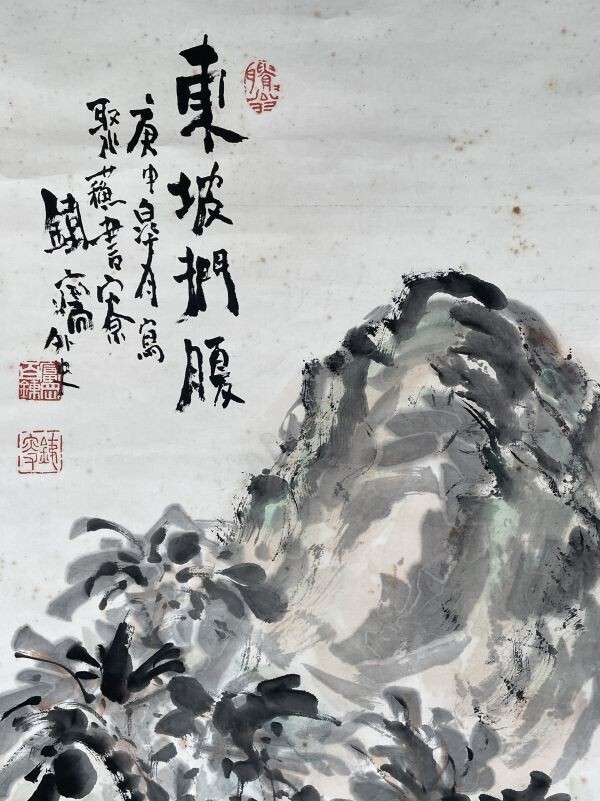 東坡捫腹
庚申皋月寫
聚蘇書寮
鐵齋外史